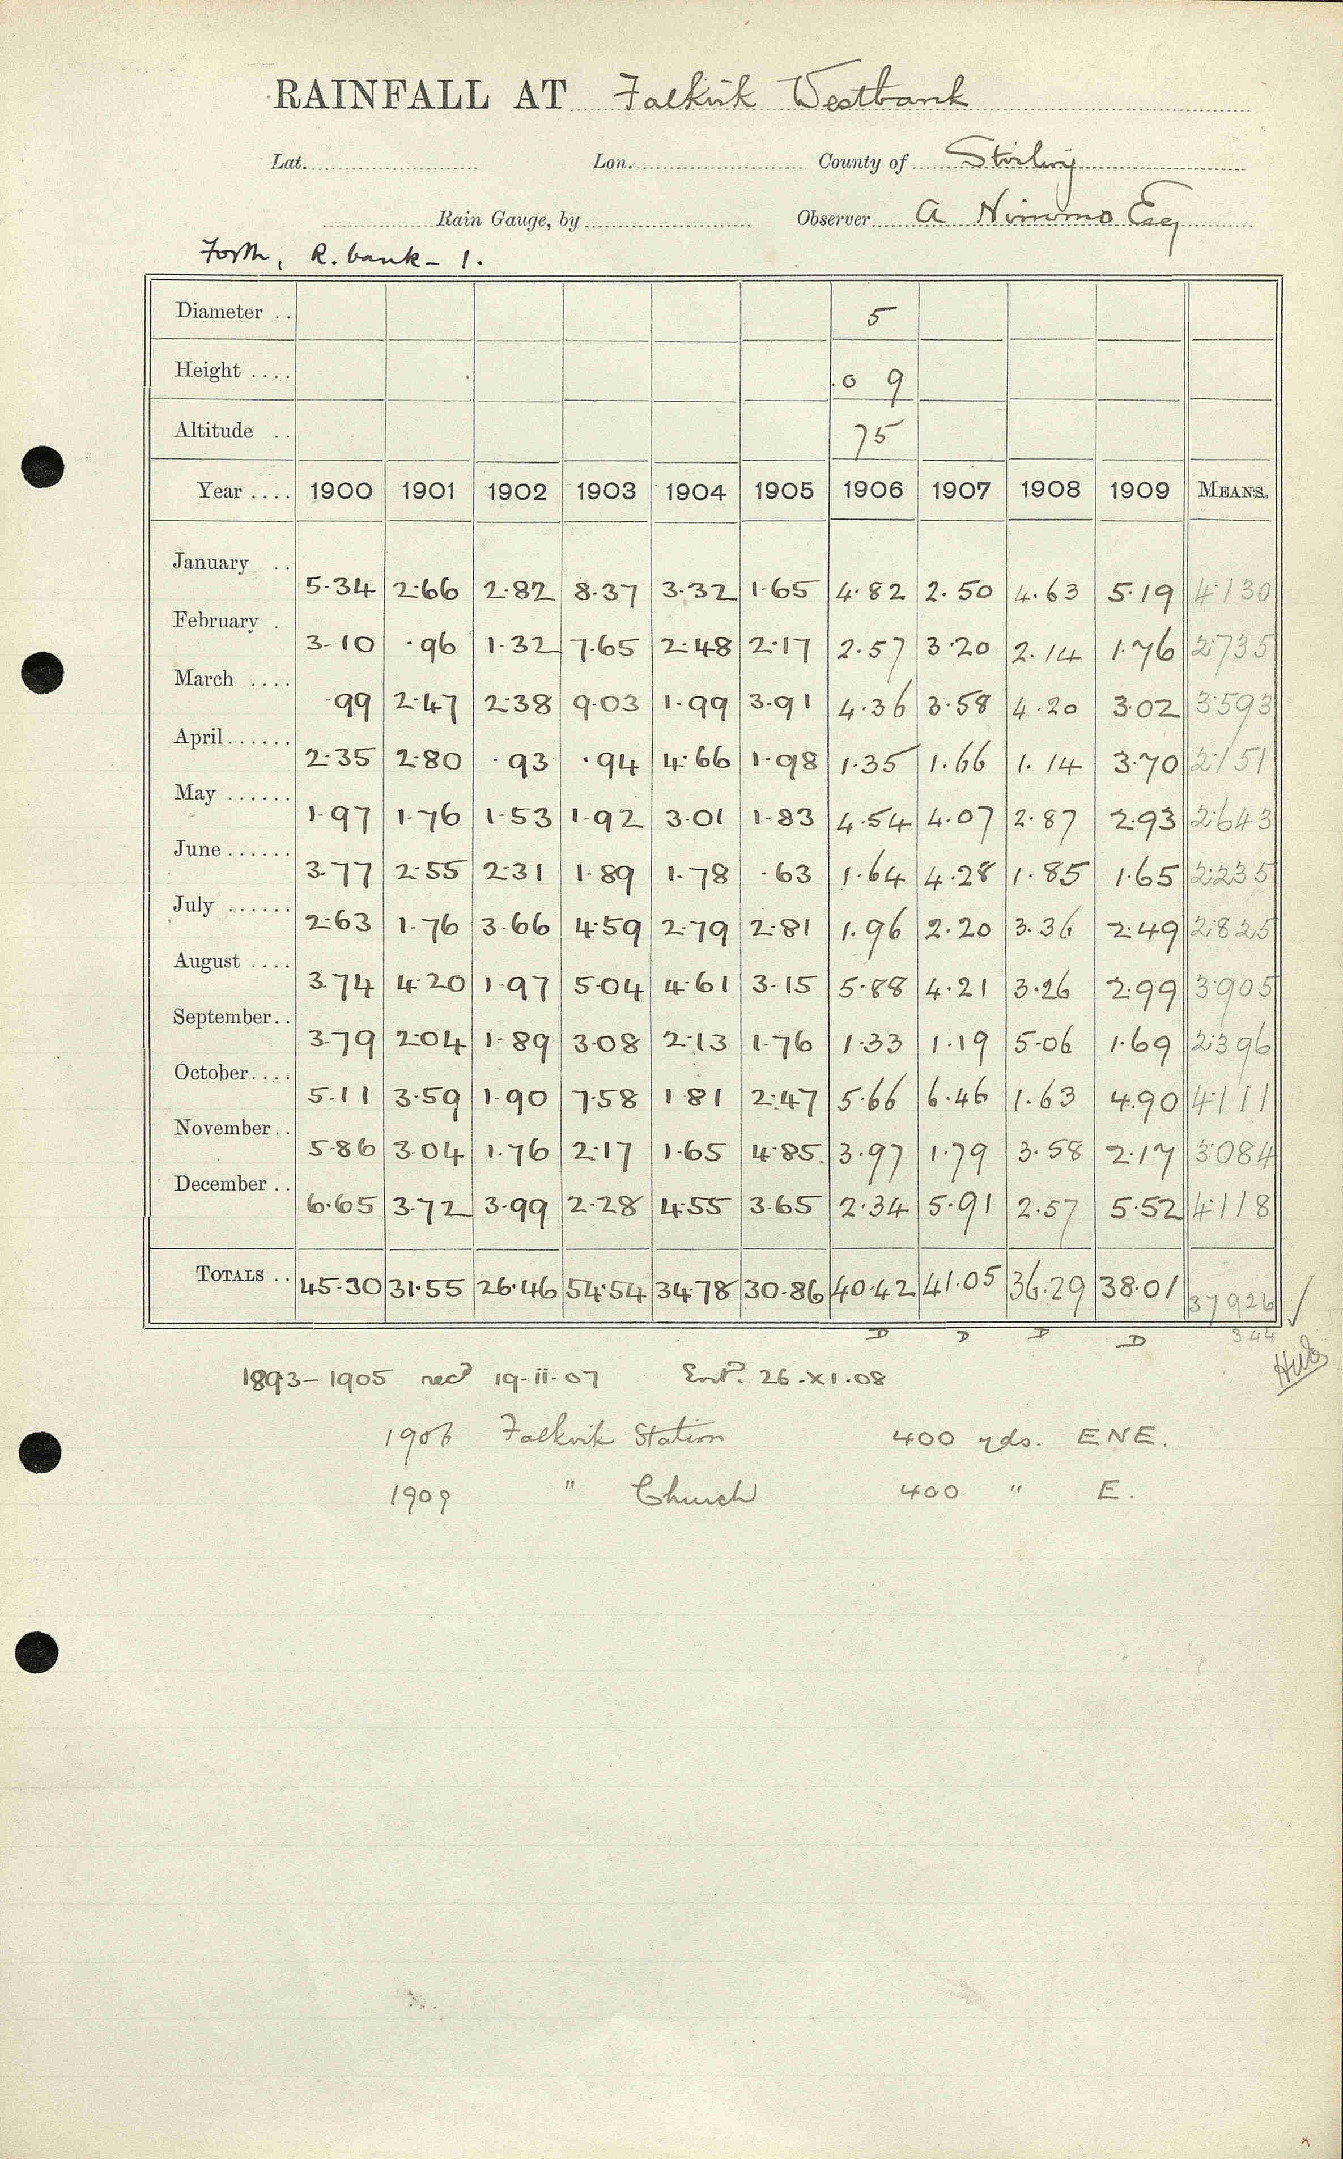 RAINFALL AT Falkirk Westbank
Lat. Lon. County of Stirling
Rain Gauge, by Observer A Nimmo Esq
Forth, R. bank - 1.
Diameter .. 5
Height .... 0 9
Altitude .. 75
Year .... 1900 1901 1902 1903 1904 1905 1906 1907 1908 1909 MEANS.
January .. 5.34 2.66 2.82 8.37 3.32 1.65 4.82 2.50 4.63 5.19 4.130
February . 3.10 .96 1.32 7.65 2.48 2.17 2.57 3.20 2.14 1.76 2.735
March .... .99 2.47 2.38 9.03 1.99 3.91 4.36 3.58 4.20 3.02 3.593
April...... 2.35 2.80 .93 .94 4.66 1.98 1.35 1.66 1.14 3.70 2.151
May ...... 1.97 1.76 1.53 1.92 3.01 1.83 4.54 4.07 2.87 2.93 2.643
June...... 3.77 2.55 2.31 1.89 1.78 .63 1.64 4.28 1.85 1.65 2.235
July ...... 2.63 1.76 3.66 4.59 2.79 2.81 1.96 2.20 3.36 2.49 2.825
August .... 3.74 4.20 1.97 5.04 4.61 3.15 5.88 4.21 3.26 2.99 3.905
September.. 3.79 2.04 1.89 3.08 2.13 1.76 1.33 1.19 5.06 1.69 2.396
October.... 5.11 3.59 1.90 7.58 1.81 2.47 5.66 6.46 1.63 4.90 4.111
November.. 5.86 3.04 1.76 2.17 1.65 4.85 3.97 1.79 3.58 2.17 3.084
December .. 6.65 3.72 3.99 2.28 4.55 3.65 2.34 5.91 2.57 5.52 4.118
TOTALS .. 45.30 31.55 26.46 54.54 34.78 30.86 40.42 41.05 36.29 38.01 37 926 ✓
D D D D 344
1893-1905 recd 19.ii.07 Entd. 26.XI.08
1906 Falkirk Station 400 yds. ENE.
1909 " Church 400 " E.